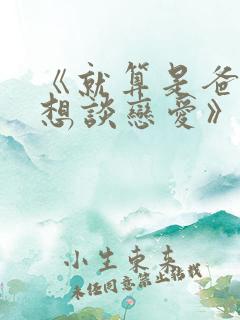 《就算是爸
想談戀愛》
小生東來
未經同意禁止轉載